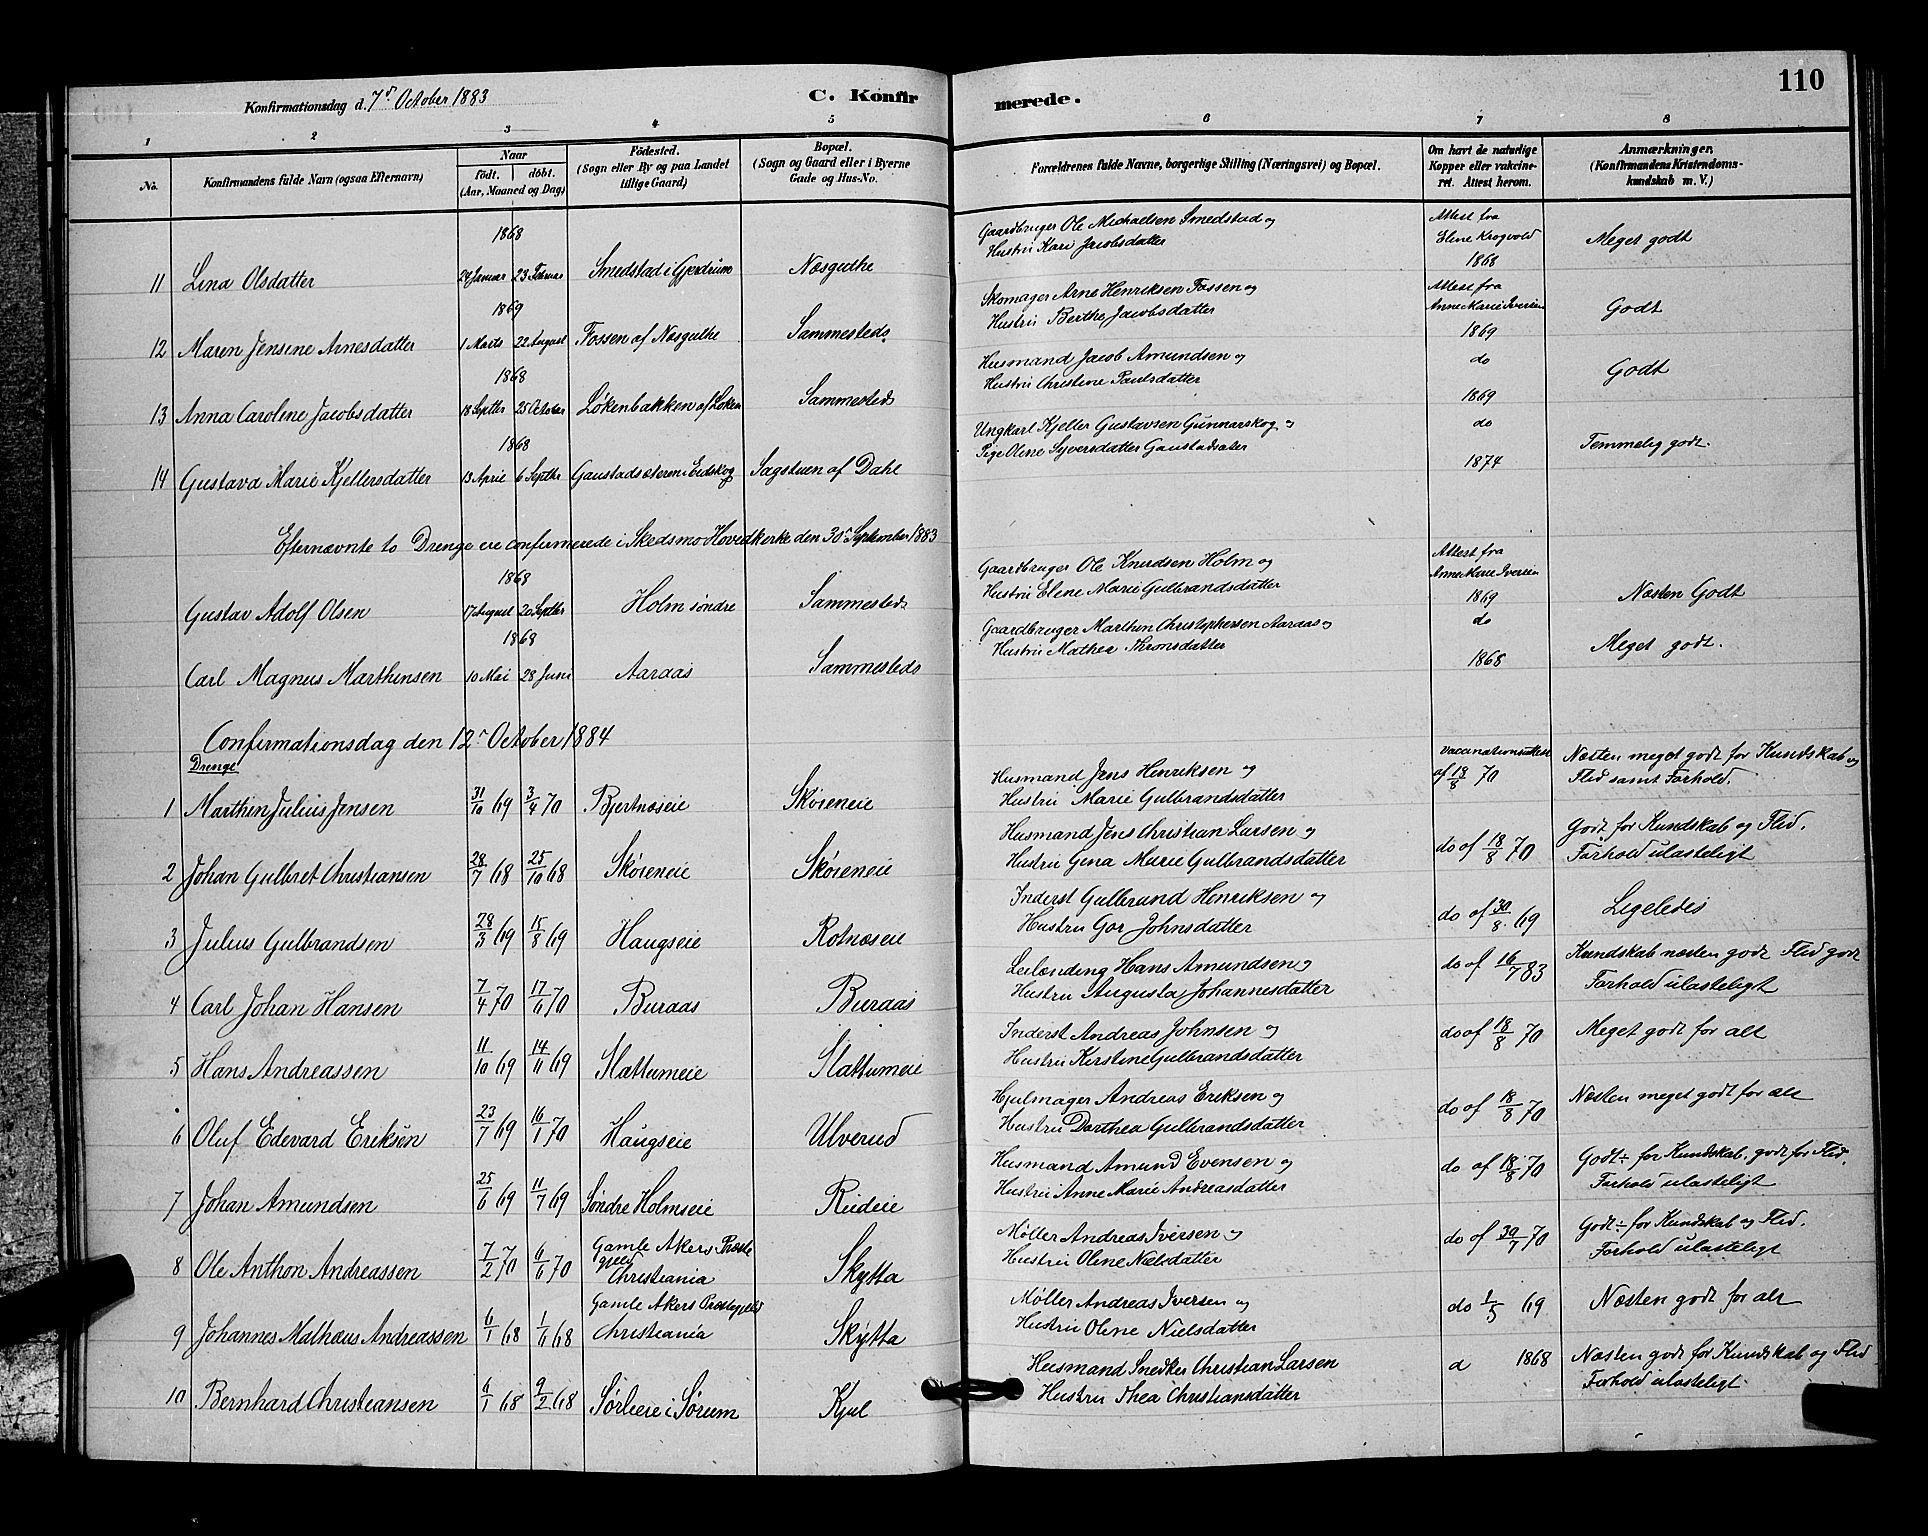 110
Konfirmationsdag d. 7de October 1883
C. Konfirmerede.
1 2 3 4 5 6 7 8
No.
Konfirmandens fulde Navn (ogsaa Efternavn)
Naar
födt. döbt.
(Aar, Maaned og Dag)
Födested.
(Sogn eller By og paa Landet
tillige Gaard)
Bopæl.
(Sogn og Gaard eller i Byerne
Gade og Hus-No.
Forældrenes fulde Navne, borgerlige Stilling (Næringsvei) og Bopæl.
Om havt de naturlige
Kopper eller vakcine-
ret. Attest herom.
Anmærkninger.
(Konfirmandens Kristendoms-
kundskab m. V.)
1868
11 Lina Olsdatter 24 Januar 23 Februar Smedstad i Gjerdrum Næsguthe
Gaardbruger Ole Michaelsen Smedstad og
Hustru Kari Jacobsdatter
Attest fra
Elene Krogvold
1868
Meget godt
1869
12 Maren Jensine Arnesdatter 1 Marts 22 August Fossen af Næsguthe Sammesteds
Skomager Arne Henriksen Fossen og
Hustru Berthe Jacobsdatter
Attest fra
Anne Marie Iversen
1869
Godt
1868
13 Anna Caroline Jacobsdatter 18 Septbr 25 October Løkenbakken af Løken Sammesteds
Husmand Jacob Amundsen og
Hustru Christine Paulsdatter
do
1869
Godt
1868
14 Gustava Marie Kjellersdatter 13 April 6 Septbr Gaustadsæteren i Eidskog Sagstuen af Dahl
Ungkarl Kjeller Gustavsen Gunnarskog og
Pige Oline Syversdatter Gaustadsæter
do
1874
Temmelig godt.
Efternævnte to Drenge ere confirmerede i Skedsmo Hovedkirke den 30te September 1883
1868
Gustav Adolf Olsen 17 August 20 Septbr Holm søndre Sammesteds
Gaardbruger Ole Knudsen Holm og
Hustru Elene Marie Gulbrandsdatter
Attest fra
Anne Marie Iversen
1869
Næsten Godt
1868
Carl Magnus Marthinsen 10 Mai 28 Juni Aaraas Sammesteds
Gaardbruger Marthin Christophersen Aaraas og
Hustru Mathea Thronsdatter
do
1868
Meget godt.
Confirmationsdag den 12te October 1884
Drenge
1 Marthin Julius Jensen 31/10 69 3/4 70 Bjertnæseie Skøieneie
Husmand Jens Henriksen og
Hustru Marie Gulbrandsdatter
Vaccinationsattest
af 18/8 70
Næsten meget godt for Kundskab og
Flid samt Forhold.
2 Johan Gulbret Christiansen 28/7 68 25/10 68 Skøieneie Skøieneie
Husmand Jens Christian Larsen og
Hustru Gina Marie Gulbrandsdatter
do af 18/8 70
Godt for Kundskab og Flid.
Forhold ulasteligt
3 Julius Gulbrandsen 28/3 69 15/8 69 Haugseie Rotnæseie
Inderst Gulbrand Henriksen og
Hustru Gor Johnsdatter
do af 30/8 69
Ligeledes
4 Carl Johan Hansen 7/4 70 17/6 70 Buraas Buraas
Leilænding Hans Amundsen og
Hustru Augusta Johannesdatter
do af 16/7 83
Kundskab næsten godt Flid godt
Forhold ulasteligt
5 Hans Andreassen 11/10 69 14/11 69 Slattumeie Slattumeie
Inderst Andreas Johnsen og
Hustru Kirstine Gulbrandsdatter
do af 18/8 70
Meget godt for alt
6 Oluf Edevard Eriksen 23/7 69 16/1 70 Haugseie Ulverud
Hjulmager Andreas Eriksen og
Hustru Dorthea Gulbrandsdatter
do af 18/8 70
Næsten meget godt for alt
7 Johan Amundsen 25/6 69 11/7 69 Søndre Holmseie Rudeie
Husmand Amund Evensen og
Hustru Anne Marie Andreasdatter
do af 18/8 70
Godt ÷ for Kundskab, godt for Flid,
Forhold ulasteligt
8 Ole Anthon Andreassen 7/2 70 6/6 70 Gamle Akers Præste
gjeld
Christiania
Skytta
Møller Andreas Iversen og
Hustru Oline Nielsdatter
do af 30/7 70
Godt ÷ for Kundskab og Flid.
Forhold ulasteligt
9 Johannes Mathæus Andreassen 6/1 68 1/6 68 Gamle Akers Præstegjeld
Christiania
Skytta
Møller Andreas Iversen og
Hustru Oline Nielsdatter
do 1/5 69
Næsten godt for alt
10 Bernhard Christiansen 6/1 68 9/2 68 Sørlieie i Sørum Kjul
Husmand Snedker Christian Larsen
Hustru Thea Christiansdatter
d 1868
Næsten godt for Kundskab og Flid
Forhold ulasteligt